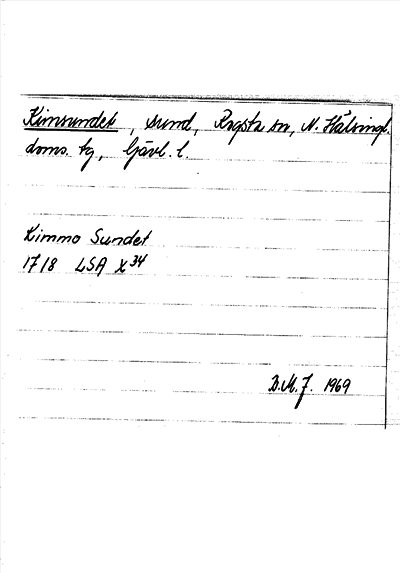 Kimsundet, sund, Rogsta sn, N. Hälsingl.
doms. tg, Gävl. l.
Kimmo Sundet
1718 LSA X 34
B.M.J. 1969